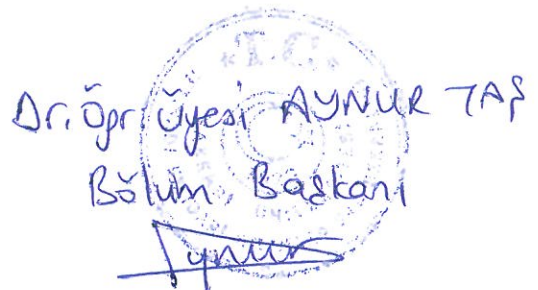 T.C.
Dr. Öğr. Üyesi AYNUR TAŞ
Bölüm Başkanı
Aynur